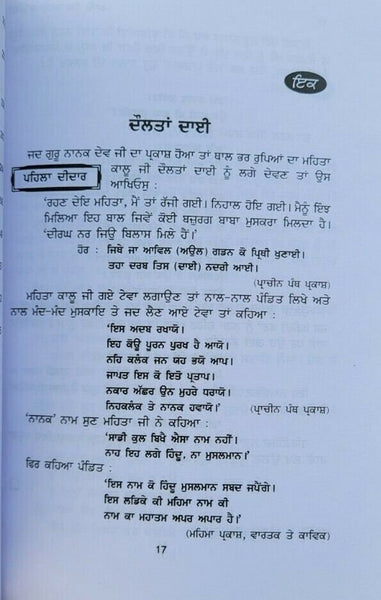 ਇਕ
ਦੌਲਤਾਂ ਦਾਈ
ਜਦ ਗੁਰੂ ਨਾਨਕ ਦੇਵ ਜੀ ਦਾ ਪ੍ਰਕਾਸ਼ ਹੋਆ ਤਾਂ ਥਾਲ ਭਰ ਰੁਪਿਆਂ ਦਾ ਮਹਿਤਾ
ਪਹਿਲਾ ਦੀਦਾਰ
ਕਾਲੂ ਜੀ ਦੌਲਤਾਂ ਦਾਈ ਨੂੰ ਲਗੇ ਦੇਵਣ ਤਾਂ ਉਸ
ਆਖਿਓਸੁ :
'ਰਹਣ ਦੇਇ ਮਹਿਤਾ, ਮੈਂ ਤਾਂ ਰੱਜੀ ਗਈ। ਨਿਹਾਲ ਹੋਇ ਗਈ। ਮੈਨੂੰ ਇੰਝ
ਮਿਲਿਆ ਇਹ ਬਾਲ ਜਿਵੇਂ ਕੋਈ ਬਜ਼ੁਰਗ ਬਾਬਾ ਮੁਸਕਰਾ ਮਿਲਦਾ ਹੈ।
'ਦੀਰਘ ਨਰ ਜਿਉ ਬਿਲਾਸ ਮਿਲੇ ਹੈਂ।'
ਹੋਰ : ਜਿਥੇ ਜਾ ਆਵਿਲ (ਅਉਲ) ਗਡਨ ਕੋ ਪ੍ਰਿਥੀ ਖੁਣਾਈ।
ਤਹਾ ਦਰਬ ਤਿਸ (ਦਾਈ) ਨਦਰੀ ਆਈ।
(ਪ੍ਰਾਚੀਨ ਪੰਥ ਪ੍ਰਕਾਸ਼)
ਮਹਿਤਾ ਕਾਲੂ ਜੀ ਗਏ ਟੇਵਾ ਲਗਾਉਣ ਤਾਂ ਨਾਲ-ਨਾਲ ਪੰਡਿਤ ਲਿਖੇ ਅਤੇ
ਨਾਲ ਮੰਦ-ਮੰਦ ਮੁਸਕਾਇ ਤੇ ਜਦ ਲੈਣ ਆਏ ਟੇਵਾ ਤਾਂ ਕਹਿਆ :
'ਇਸ ਅਦਬ ਰਖਾਯੋ।
ਇਹ ਕੋਊ ਪੂਰਨ ਪੁਰਖ ਹੈ ਆਯੋ।
ਨਹਿ ਕਲੰਕ ਜਨ ਯਹ ਭਯੋ ਆਪ।
ਜਾਪਤ ਇਸ ਕੋ ਇਤੋ ਪ੍ਰਤਾਪ।
ਨਕਾਰ ਅੱਛਰ ਉਨ ਮੁਹਰੇ ਧਰਾਯੋ।
ਨਿਹਕਲੰਕ ਤੇ ਨਾਨਕ ਹਵਾਯੋ।'
(ਪ੍ਰਾਚੀਨ ਪੰਥ ਪ੍ਰਕਾਸ਼)
'ਨਾਨਕ' ਨਾਮ ਸੁਣ ਮਹਿਤਾ ਜੀ ਨੇ ਕਹਿਆ :
'ਸਾਡੀ ਕੁਲ ਬਿਖੈ ਐਸਾ ਨਾਮ ਨਹੀਂ।
ਨਾਹ ਇਹ ਲਗੇ ਹਿੰਦੂ, ਨਾ ਮੁਸਲਮਾਨ।'
ਫਿਰ ਕਹਿਆ ਪੰਡਿਤ :
'ਇਸ ਨਾਮ ਕੋ ਹਿੰਦੂ ਮੁਸਲਮਾਨ ਸਬਦ ਜਪੈਂਗੇ।
ਇਸ ਲਡਿਕੇ ਕੀ ਮਹਿਮਾ ਨਾਮ ਕੀ
ਨਾਮ ਕਾ ਮਹਾਤਮ ਅਪਰ ਅਪਾਰ ਹੈ।'
(ਮਹਿਮਾ ਪ੍ਰਕਾਸ਼, ਵਾਰਤਕ ਤੇ ਕਾਵਿਕ)
17